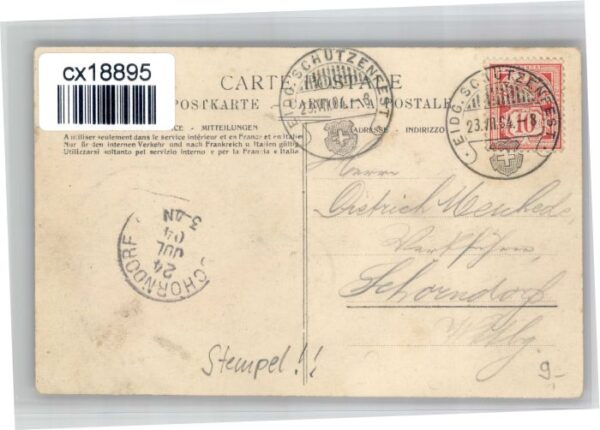 cx18895
CARTE POSTALE
POSTKARTE – CARTOLINA POSTALE
MITTEILUNGEN ADRESSE INDIRIZZO
A utiliser seulement dans le service intérieur et en France et en Italie
Nur für den internen Verkehr und nach Frankreich u Italien gültig
Utilizzarsi soltanto pel servizio interno e per la Francia e Italia
EIDG. SCHÜTZENFEST
EIDG. SCHÜTZENFEST
23.VII.04.
10
Herrn
Dietrich
Schorndorf
Wttbg
SCHORNDORF
24
JUL
04
3-4N
Stempel!!
9.-